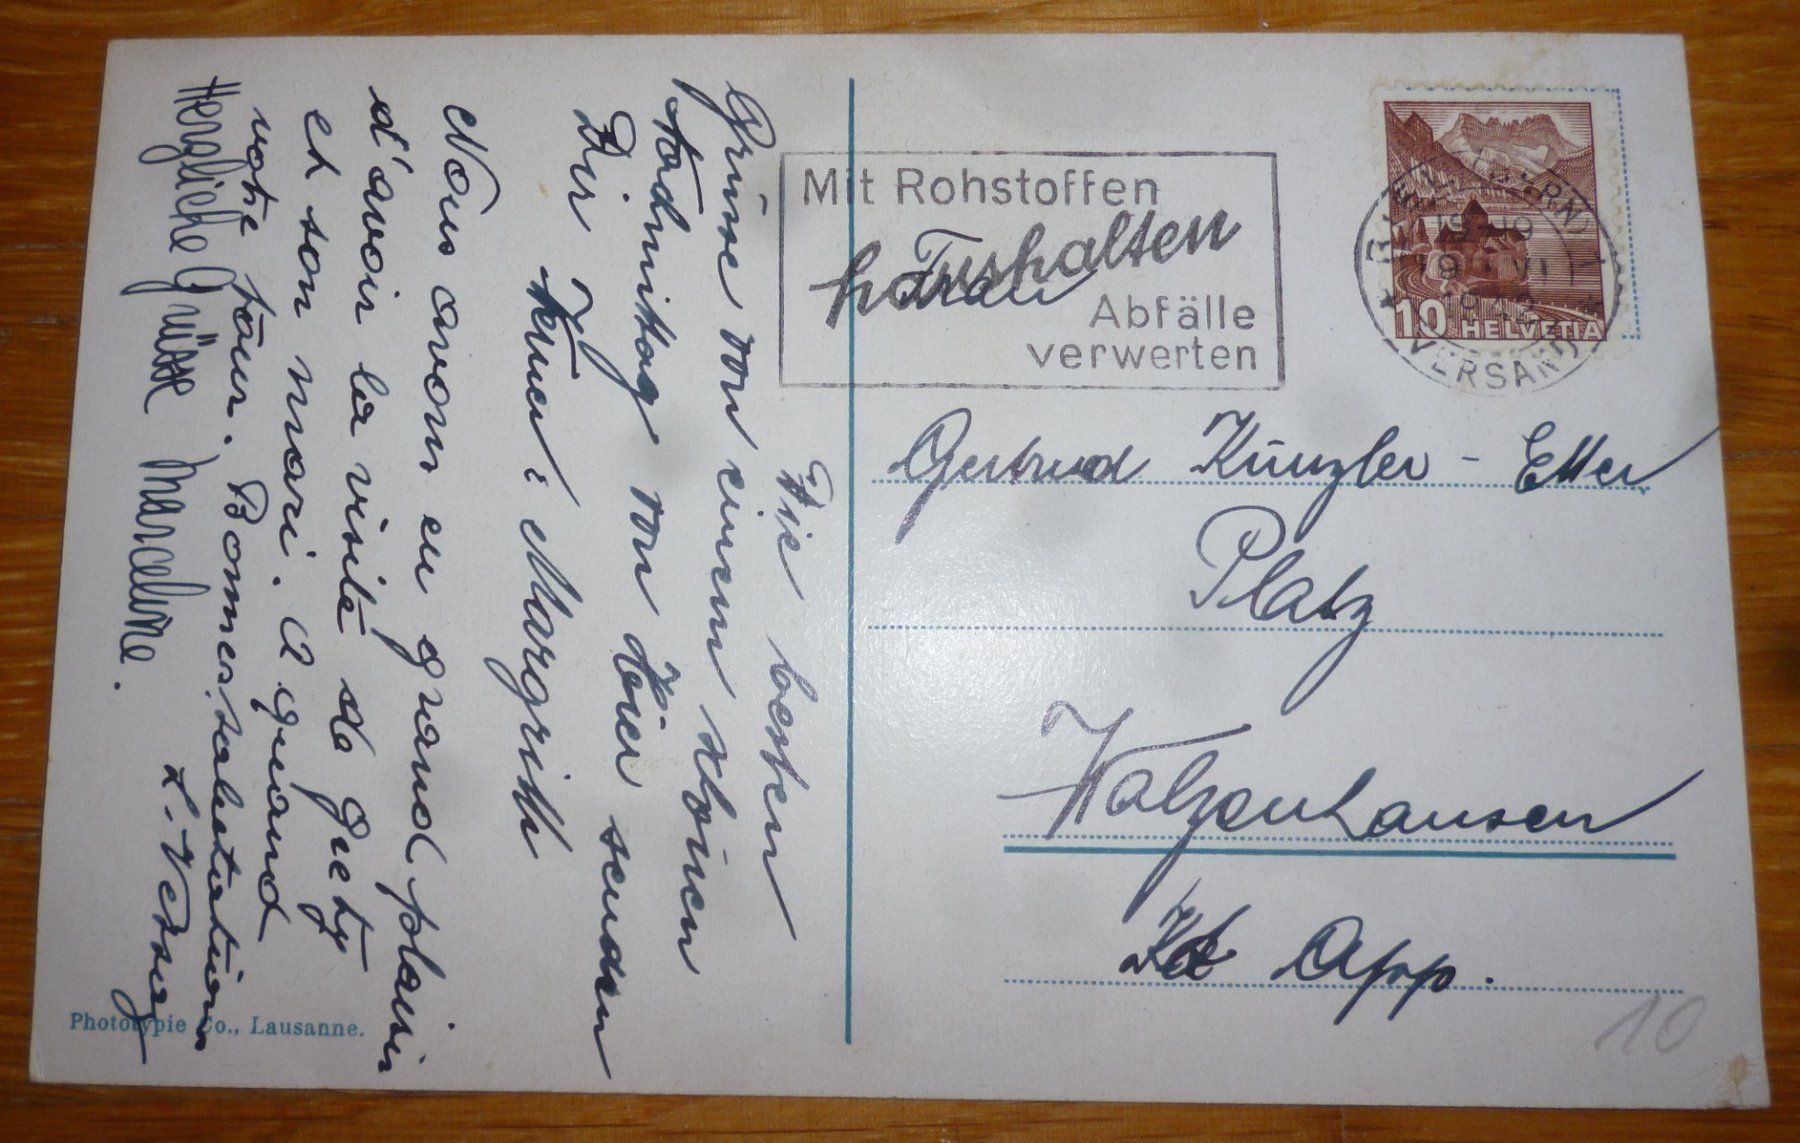 Die besten
Grüsse von einem schönen
Nachmittag von hier senden
Dir Heiner & Margrith
Nous avons eu grand plaisir
d'avoir la visite de Grety
et son mari. A quand
votre tour. Bonnes salutations
Herzliche Grüsse Marceline.
Mit Rohstoffen
haushalten
Abfälle
verwerten
Frau
BERN 1
19
19. VI
VERSAND
10 HELVETIA
Gertrud Künzler - Etter
Platz
Walzenhausen
Kt App.
Phototypie Co., Lausanne.
10